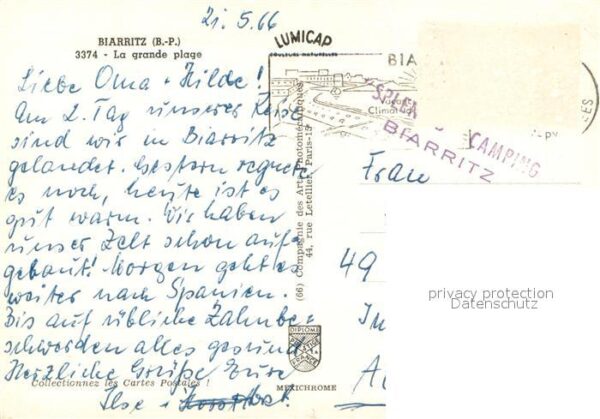 21.5.66
BIARRITZ (B.-P.)
3374 - La grande plage
Liebe Oma + Hilde!
Am 2. Tag unserer Reise
sind wir in Biarritz
gelandet. Gestern regnete
es noch, heute ist es
gut warm. Wir haben
unser Zelt schon auf-
gebaut! Morgen geht es
weiter nach Spanien.
Bis auf übliche Zahnbe-
schwerden alles gesund.
Herzliche Grüße Eure
Ilse +
Collectionnez les Cartes Postales !
MEXICHROME
LUMICAP
COULEURS NATURELLES
(66) Compagnie des Arts Photomécaniques
44, rue Letellier, Paris-15
DIPLOME
PRESTIGE
FRANCE
BIA
CAMPING
BIARRITZ
Frau
49
privacy protection
Datenschutz